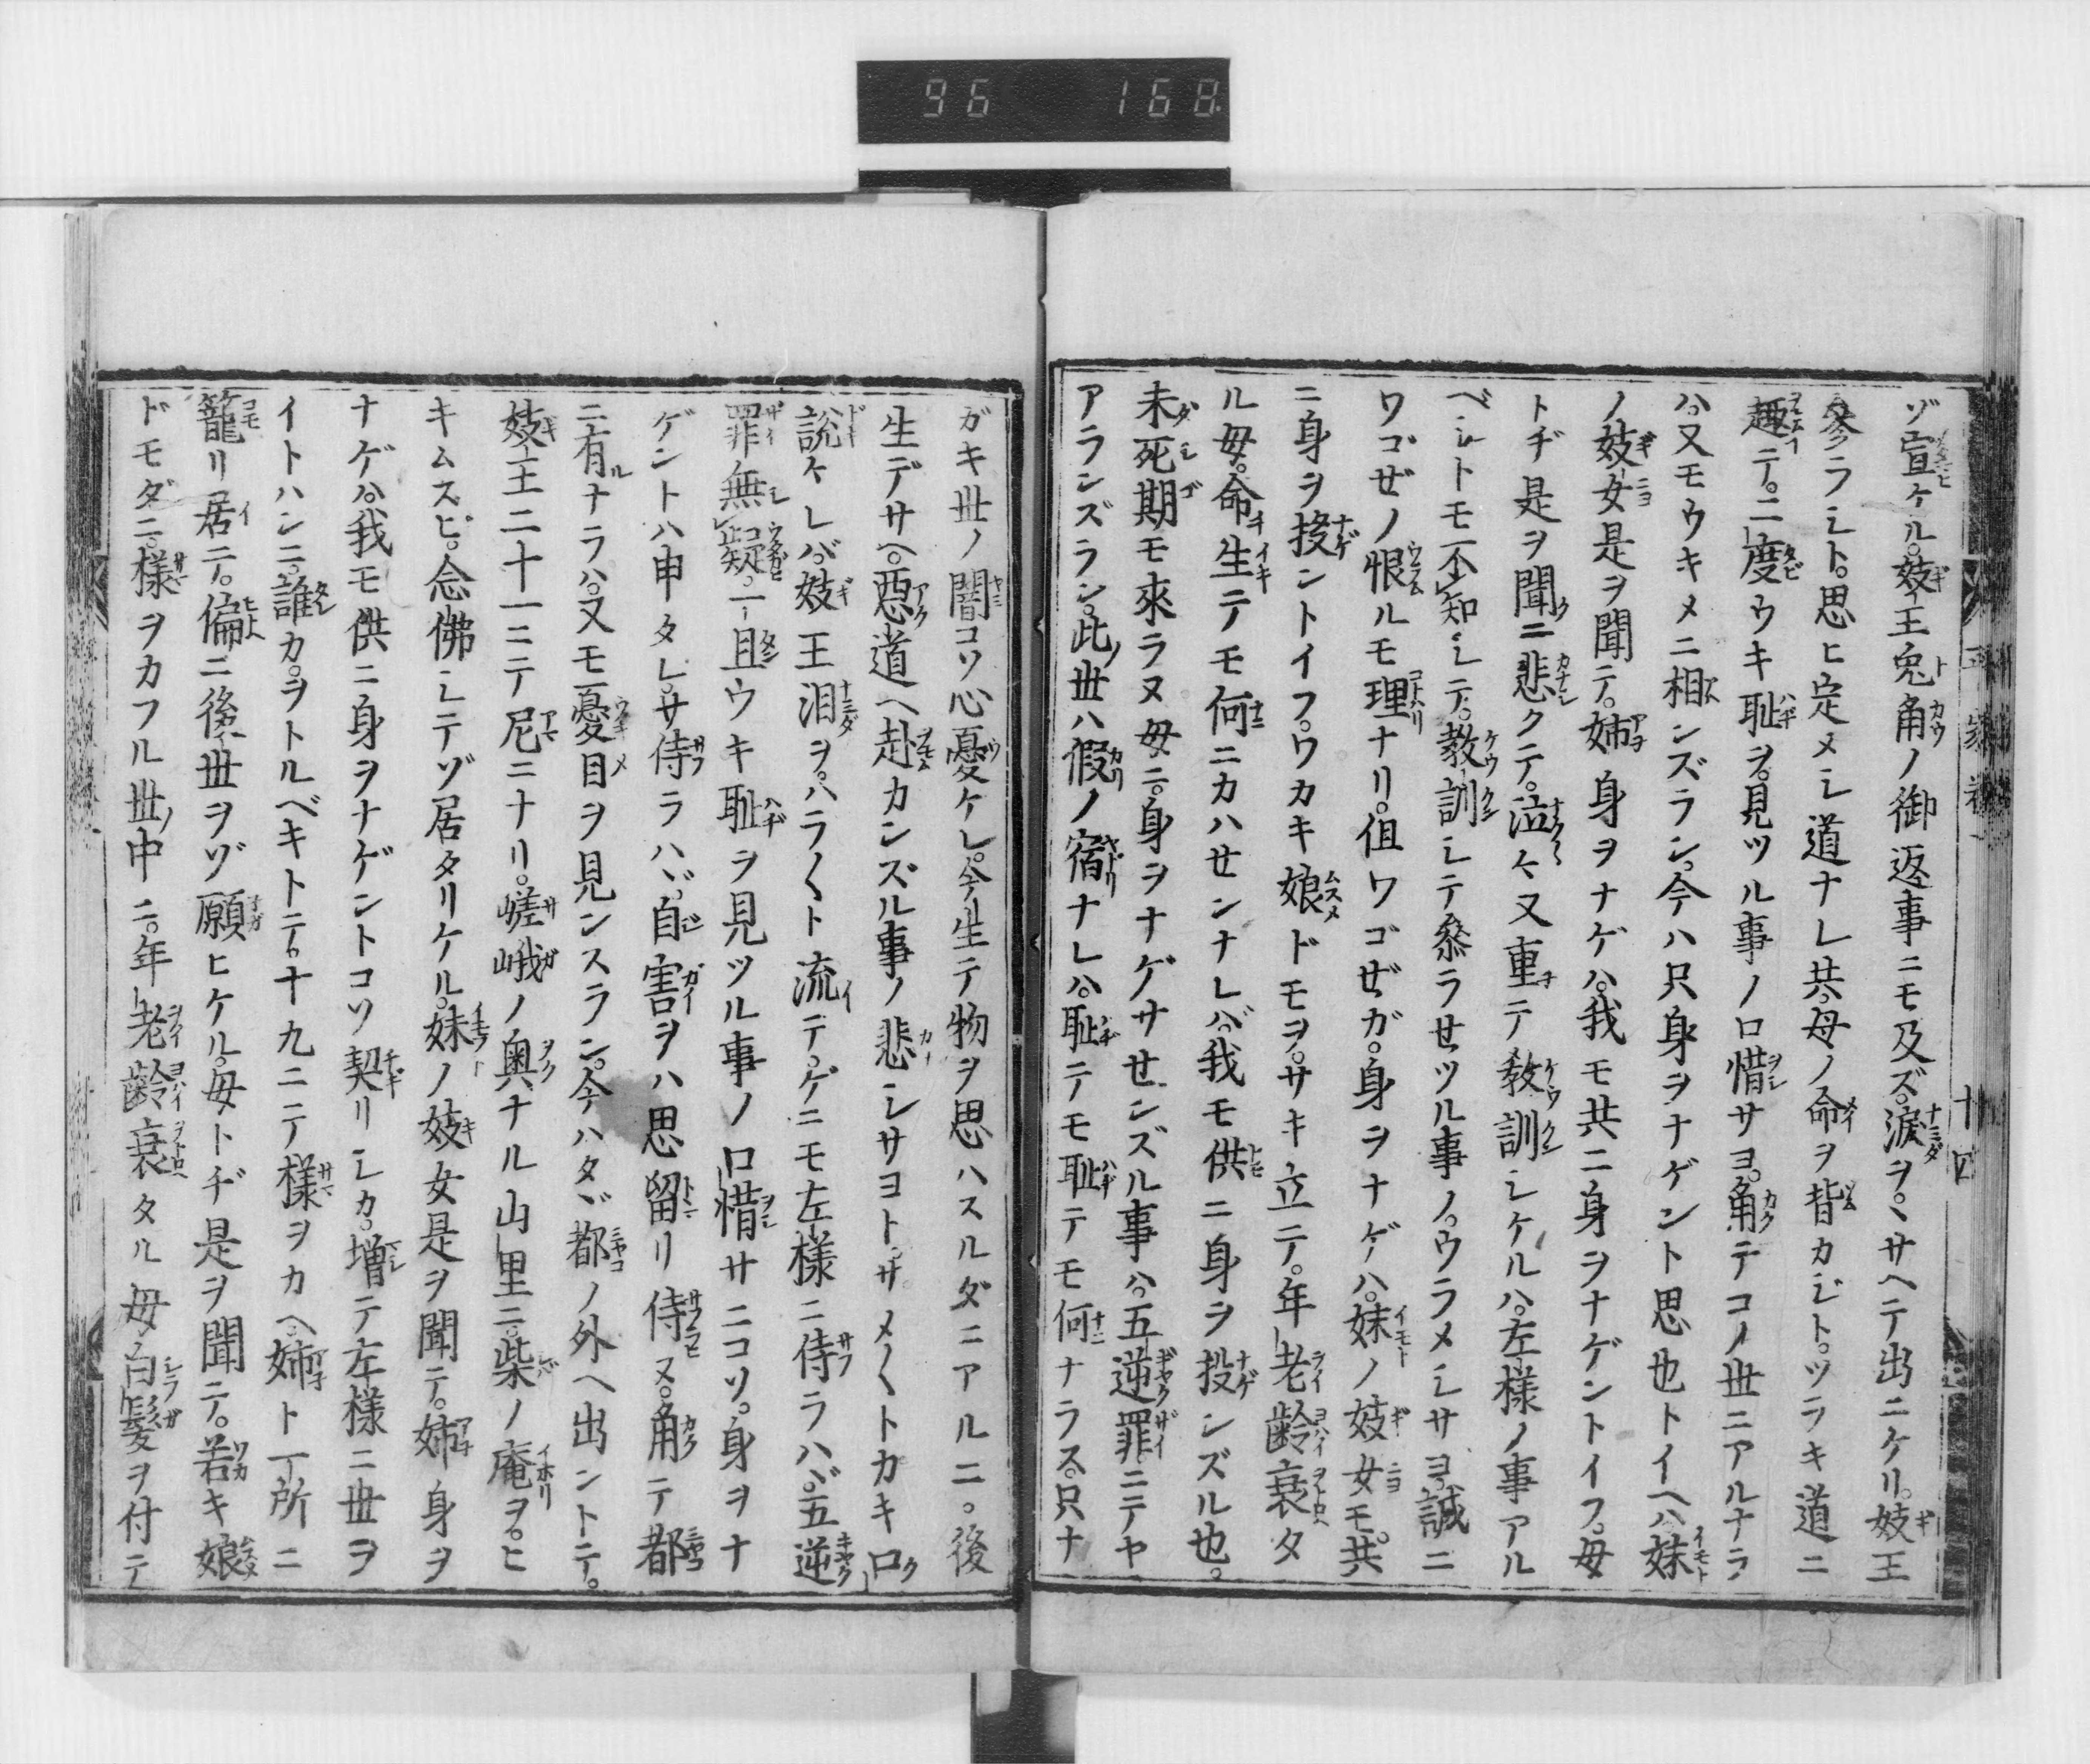 96 168
ゾ宣ケル。妓王兎角ノ御返事ニモ及ズ。涙ヲ、サヘテ出ニケリ。妓王
參ラシト。思ヒ定メシ道ナレ共。母ノ命ヲ背カジト。ツラキ道ニ
趣テ。二度ウキ耻ヲ。見ツル事ノ口惜サヨ。角テコノ世ニアルナラ
ハ。又モウキメニ相ンズラン。今ハ只身ヲナゲント思也トイヘハ妹
ノ妓女是ヲ聞テ。姉身ヲナゲハ。我モ共ニ身ヲナゲントイフ。母
トヂ是ヲ聞ニ悲クテ。泣々又重テ教訓シケルハ。左樣ノ事アル
ベシトモ不知シテ。教訓シテ參ラせツル事ノ。ウラメシサヨ。誠ニ
ワゴぜノ恨ルモ理ナリ。但ワゴぜガ。身ヲナゲハ。妹ノ妓女モ。共
ニ身ヲ投ントイフ。ワカキ娘ドモヲ。サキ立テ。年老齢衰タ
ル母。命生テモ何ニカハせンナレバ。我モ供ニ身ヲ投ンズル也。
未死期モ來ラヌ母ニ。身ヲナゲサせンズル事ハ。五逆罪ニテヤ
アランズラン。此世ハ假ノ宿ナレハ。耻テモ耻テモ何ナラス。只ナ
平家巻一 十四
ガキ世ノ闇コソ心憂ケレ。今生テ物ヲ思ハスルダニアルニ。後
生デサヘ。惡道ヘ赴カンズル事ノ悲シサヨトサメ〱トカキ口
説ケレバ。妓王泪ヲ。ハラ〱ト流テ。ゲニモ左樣ニ侍ラハヾ。五逆
罪無疑。一旦ウキ耻ヲ見ツル事ノ口惜サニコソ。身ヲナ
ゲントハ申タレ。サ侍ラハヾ。自害ヲハ思留リ侍ヌ。角テ都
ニ有ナラハ。又モ憂目ヲ見ンスラン。今ハタヾ都ノ外ヘ出ントテ。
妓王二十一ニテ尼ニナリ。嵯峨ノ奧ナル山里ニ。柴ノ庵ヲ。ヒ
キムスビ。念佛シテゾ居タリケル。妹ノ妓女是ヲ聞テ。姉身ヲ
ナゲハ。我モ供ニ身ヲナゲントコソ契リシカ。増テ左樣ニ世ヲ
イトハンニ。誰カ。ヲトルベキトテ。十九ニテ樣ヲカヘ。姉ト一所ニ
籠リ居テ。偏ニ後世ヲゾ願ヒケル。母トヂ是ヲ聞テ。若キ娘
ドモダニ。樣ヲカフル世中ニ。年老齢衰タル母。白髮ヲ付テ